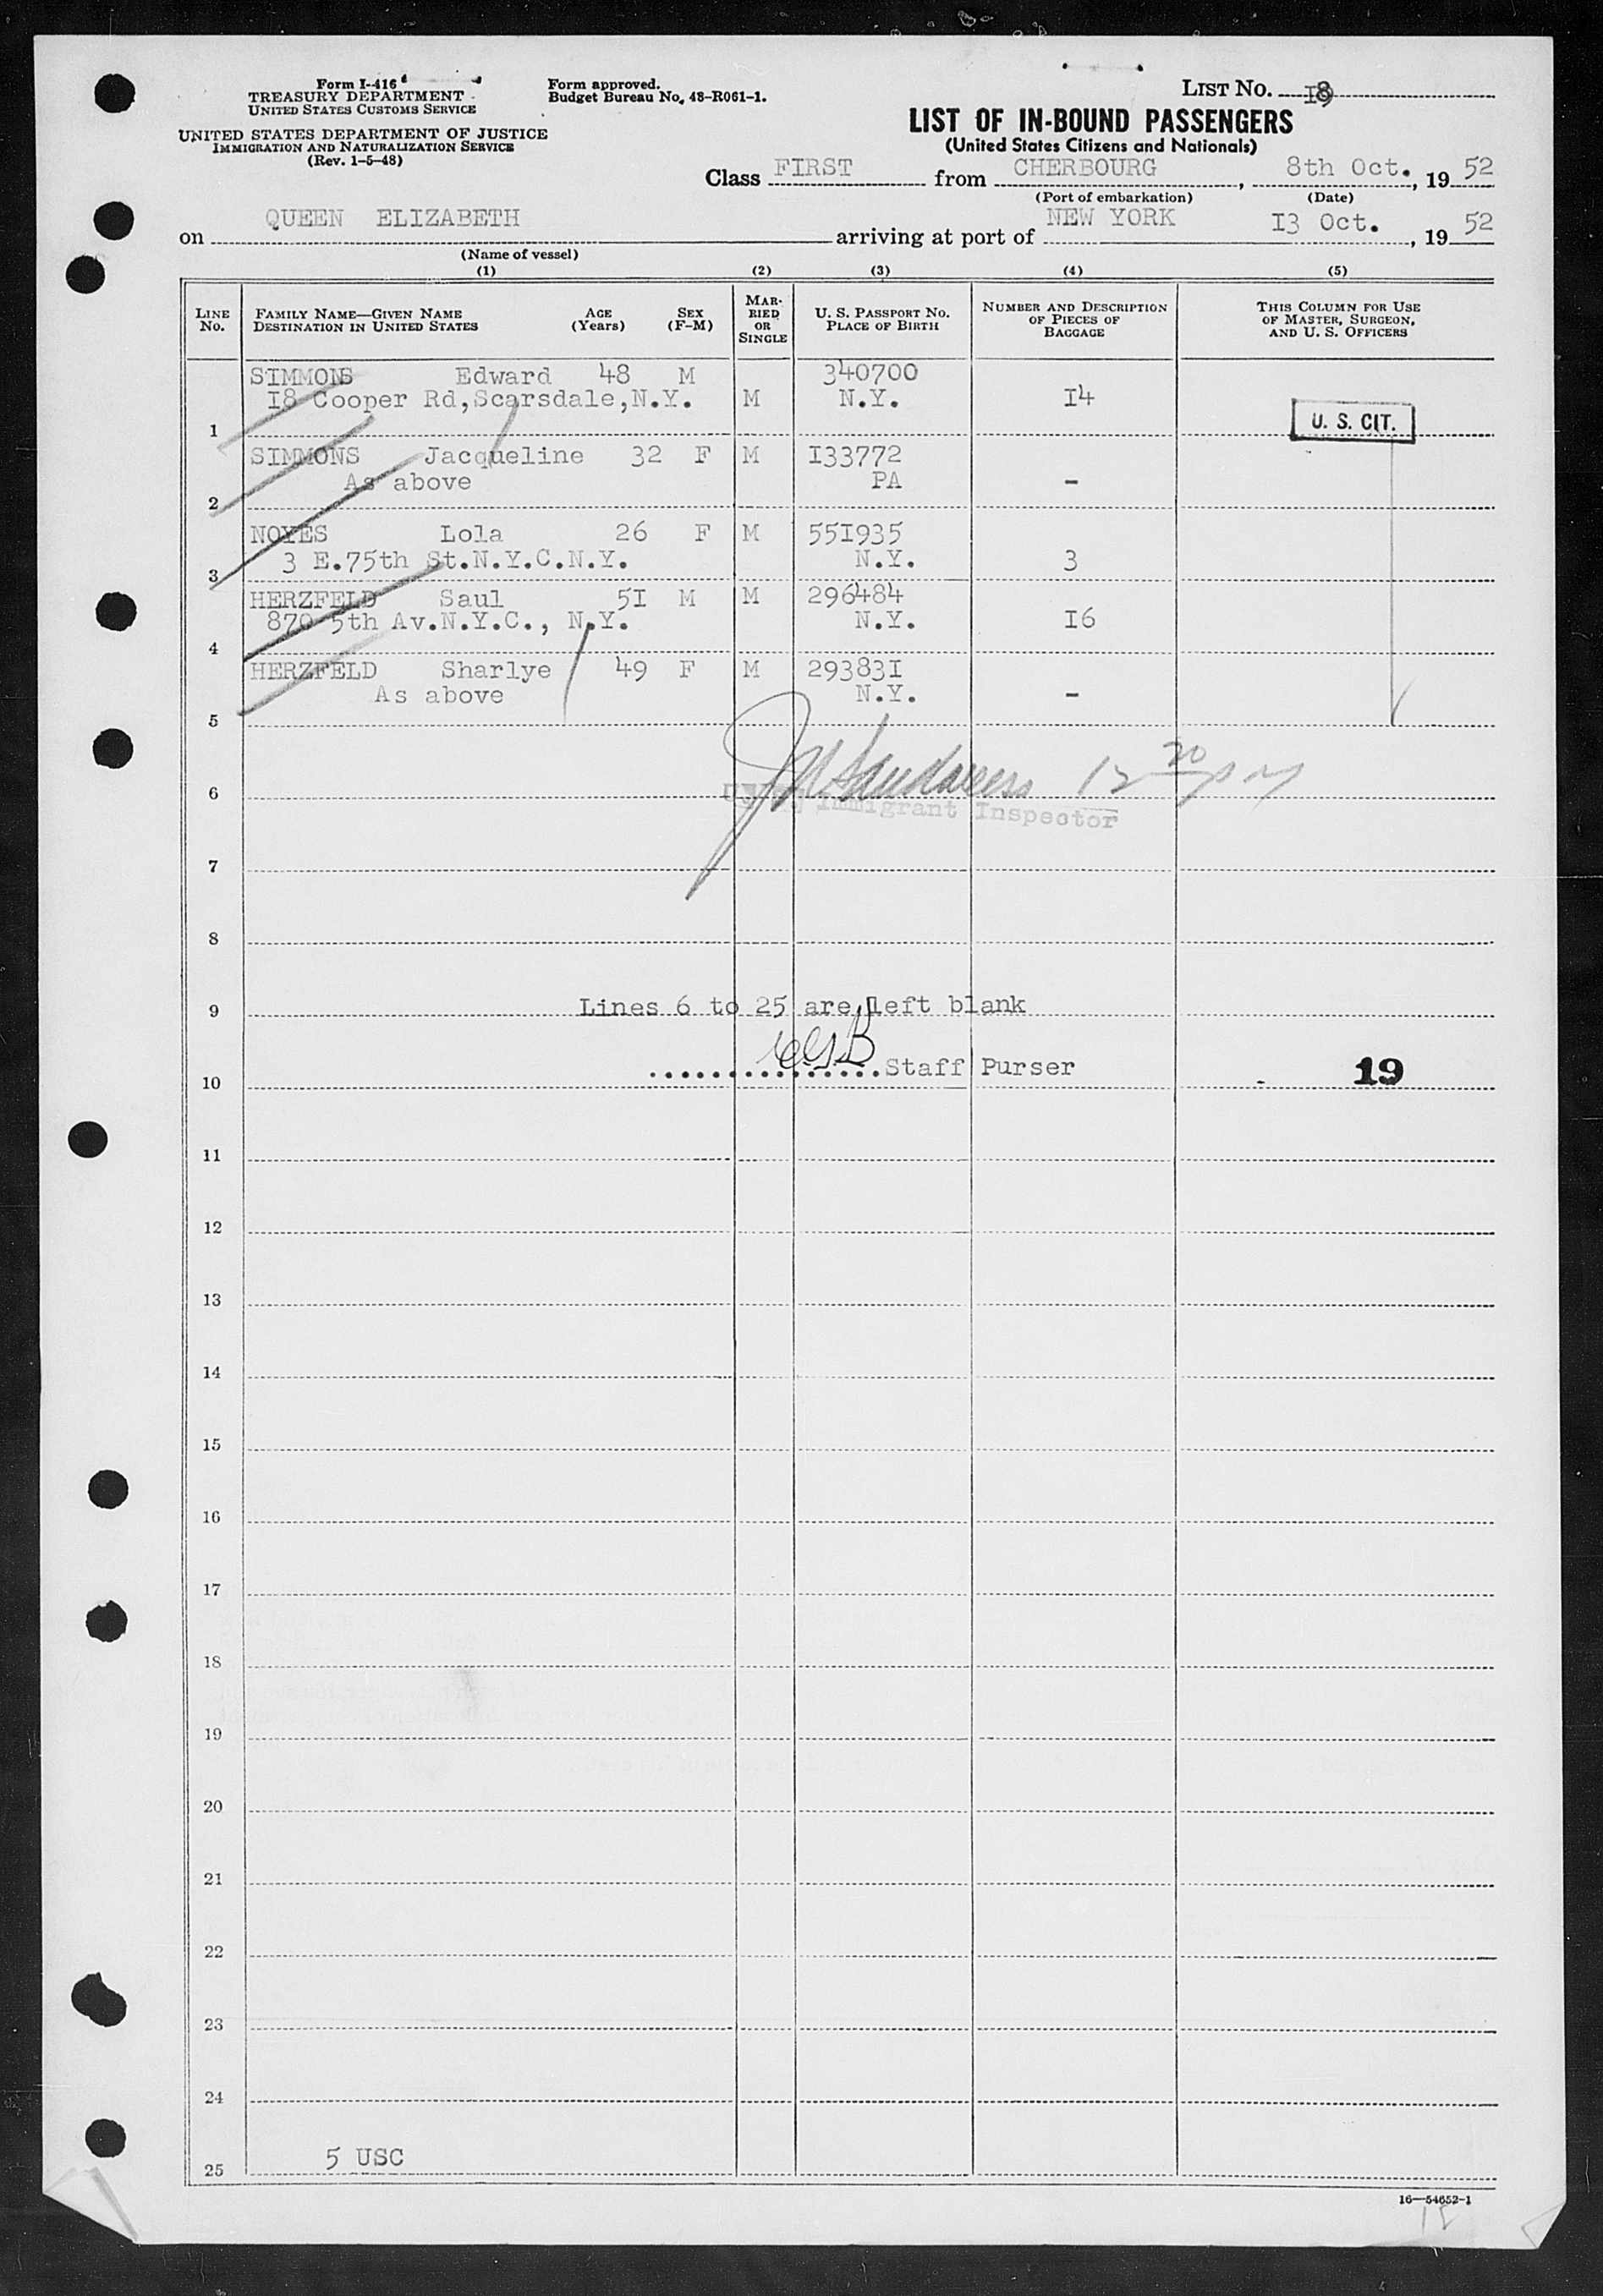 Form I-416
TREASURY DEPARTMENT
UNITED STATES CUSTOMS SERVICE
UNITED STATES DEPARTMENT OF JUSTICE
IMMIGRATION AND NATURALIZATION SERVICE
(Rev. 1-5-48)
Form approved.
Budget Bureau No. 48-R061-1.
LIST NO. 18
LIST OF IN-BOUND PASSENGERS
(United States Citizens and Nationals)
Class FIRST from CHERBOURG, 8th Oct., 19 52
(Port of embarkation) (Date)
on QUEEN ELIZABETH arriving at port of NEW YORK 13 Oct., 19 52
(Name of vessel)
(1) (2) (3) (4) (5)
LINE NO. FAMILY NAME—GIVEN NAME DESTINATION IN UNITED STATES AGE (Years) SEX (F-M) MARRIED OR SINGLE U. S. PASSPORT NO. PLACE OF BIRTH NUMBER AND DESCRIPTION OF PIECES OF BAGGAGE THIS COLUMN FOR USE OF MASTER, SURGEON, AND U. S. OFFICERS
SIMMONS Edward 48 M 340700
18 Cooper Rd,Scarsdale,N.Y. M N.Y. 14
1 U. S. CIT.
SIMMONS Jacqueline 32 F M 133772
As above PA -
2
NOYES Lola 26 F M 551935
3 E.75th St.N.Y.C.N.Y. N.Y. 3
3
HERZFELD Saul 51 M M 296484
870 5th Av.N.Y.C., N.Y. N.Y. 16
4
HERZFELD Sharlye 49 F M 293831
As above N.Y. -
5
12 20 PM
6 Immigrant Inspector
7
8
9 Lines 6 to 25 are left blank
10 ................Staff Purser 19
11
12
13
14
15
16
17
18
19
20
21
22
23
24
25 5 USC
16—54652-1